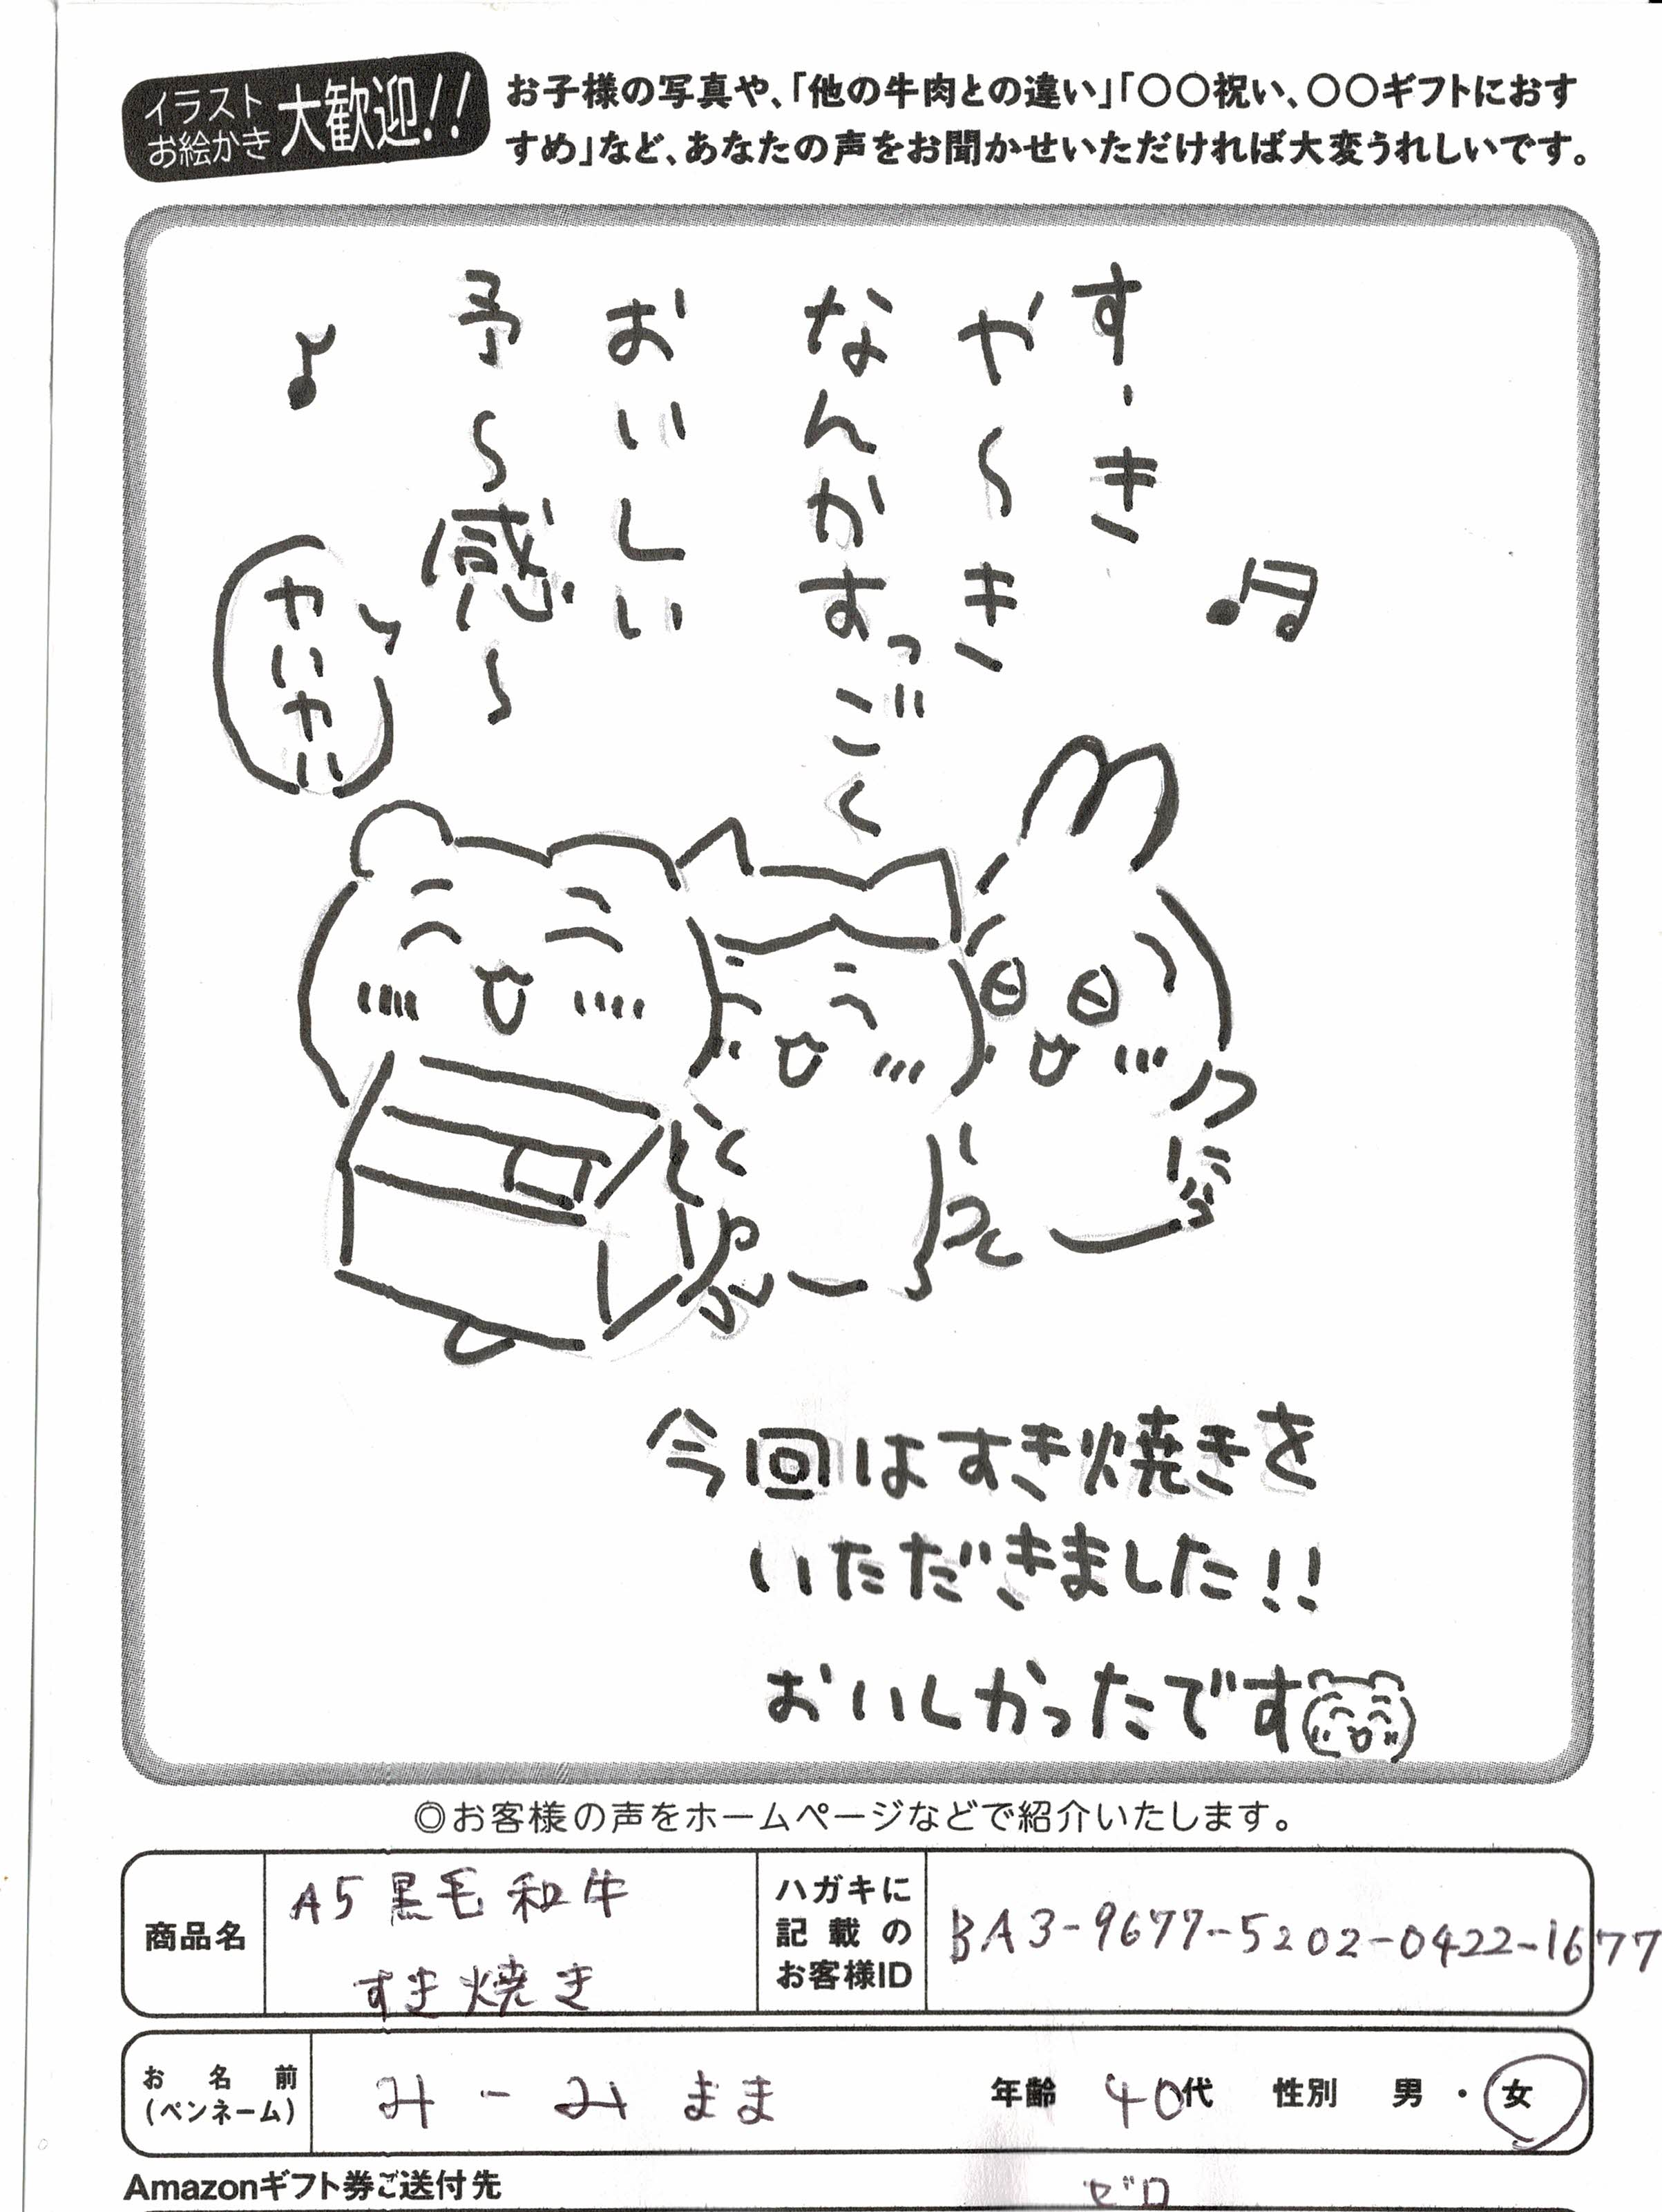 イラスト
お絵かき
大歓迎!!
お子様の写真や、「他の牛肉との違い」「〇〇祝い、〇〇ギフトにおす
すめ」など、あなたの声をお聞かせいただければ大変うれしいです。
す、き
や〜き
なんかすっごく
おいしい
予〜感〜
♪
ワイワイ
今回はすき焼きを
いただきました!!
おいしかったです
◎お客様の声をホームページなどで紹介いたします。
商品名
A5黒毛和牛
すき焼き
ハガキに
記載の
お客様ID
BA3-9677-5202-0422-1677
お名前
(ペンネーム)
みーみまま
年齢 40代 性別 男・女
Amazonギフト券ご送付先
ゼロ